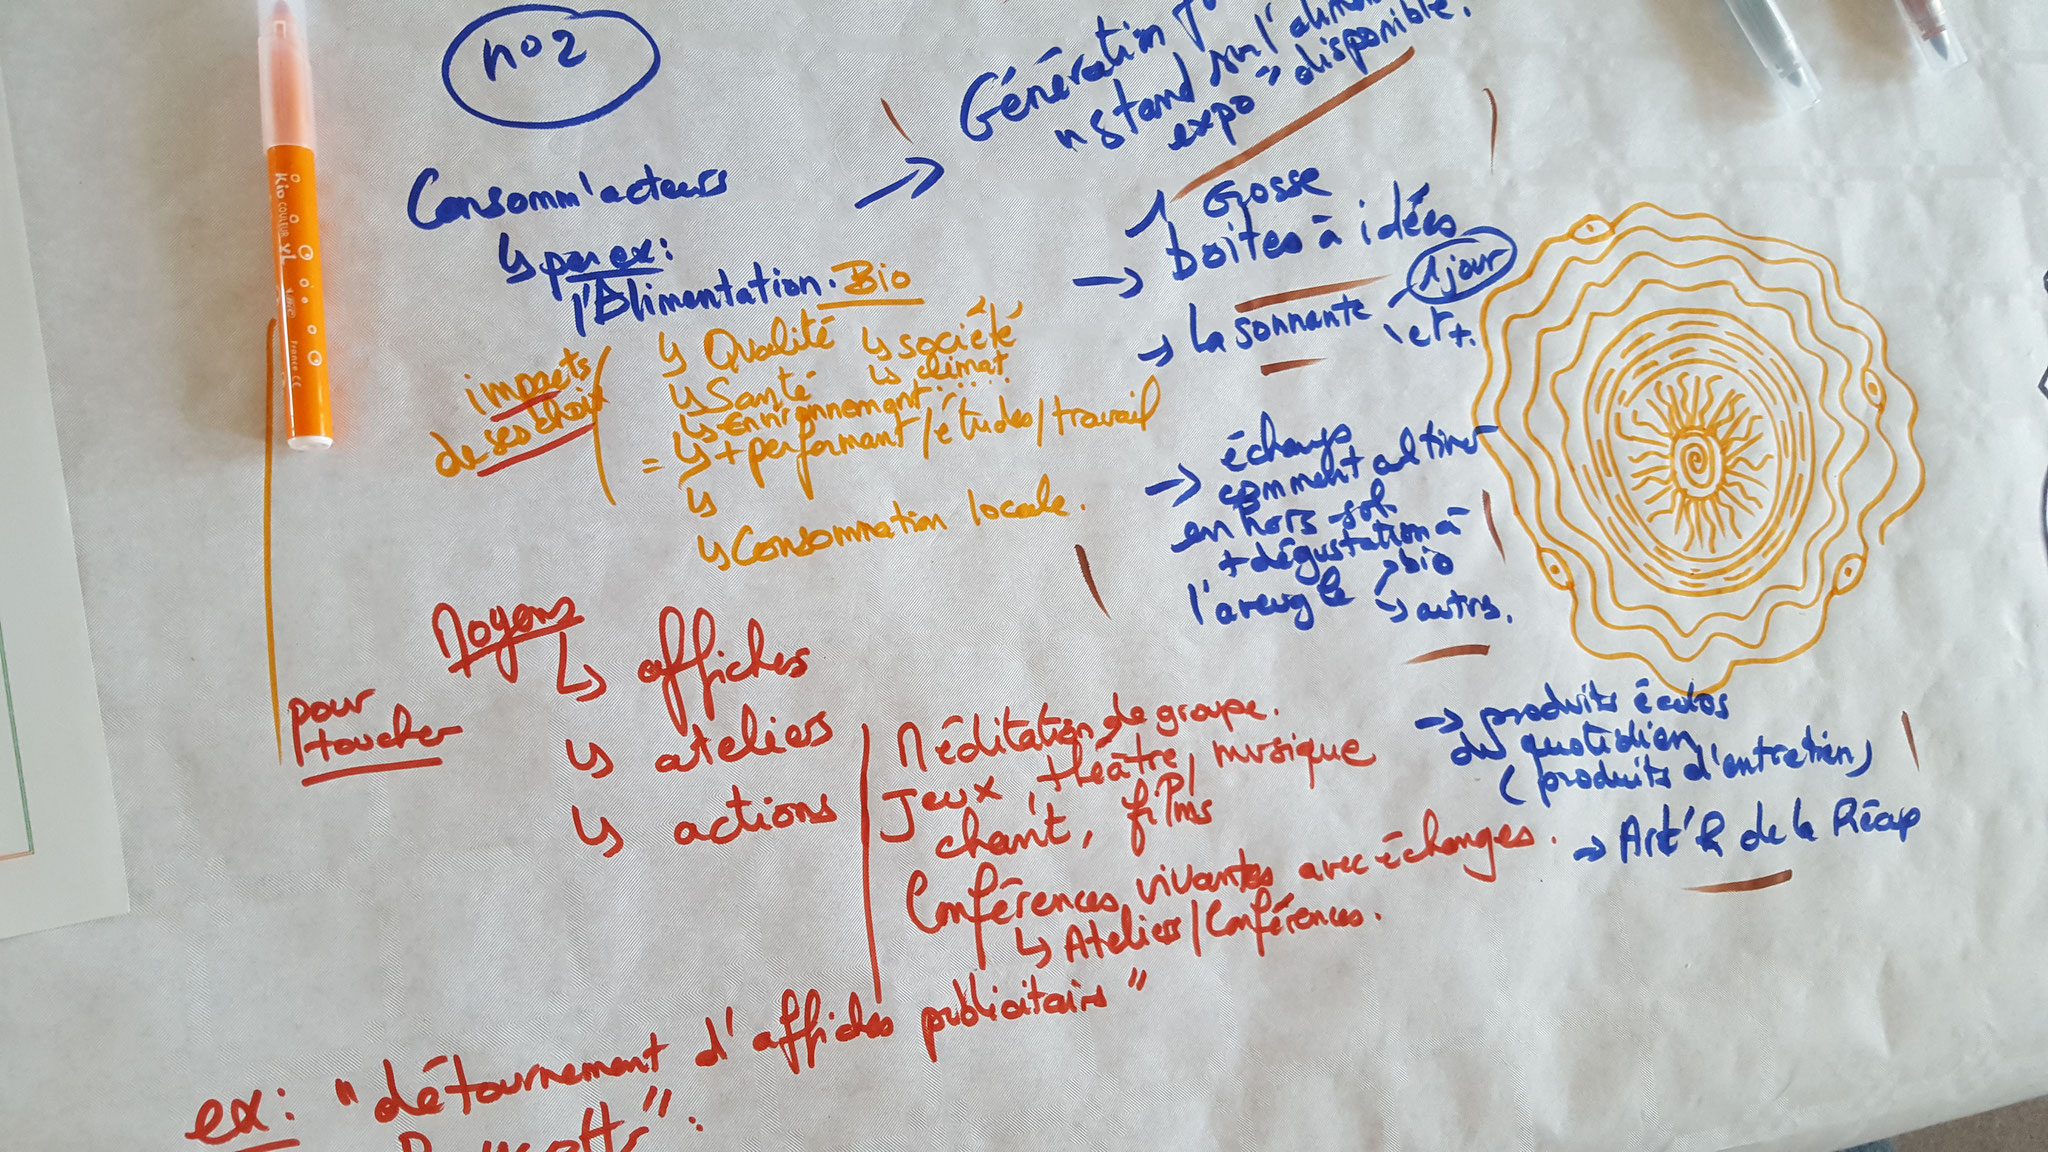 no2
Consomm'acteurs
↳ par ex:
l'Alimentation. Bio
impacts
de ses choix
↳ Qualité
↳ Santé
↳ Environnement.....
= ↳ + performant/études/travail
↳
↳ Consommation locale.
↳ société
↳ climat
Moyens
↳ affiches
↳ ateliers
↳ actions
pour
toucher
Méditation de groupe.
Jeux, théâtre, musique
chant, films
Conférences vivantes avec échanges.
↳ Ateliers/Conférences.
ex: "détournement d'affiches publicitaires"
Génération
"stand sur l'
expo" disponible.
→ Grosse
boites à idées
→ La sonnante
1 jour
et +.
→ échange
comment cultiver
en hors-sol
+ dégustation à
l'aveugle → bio
→ autres.
→ produits écolos
du quotidien
(produits d'entretien)
→ de la Récup
Kid COULEUR XL
France CC